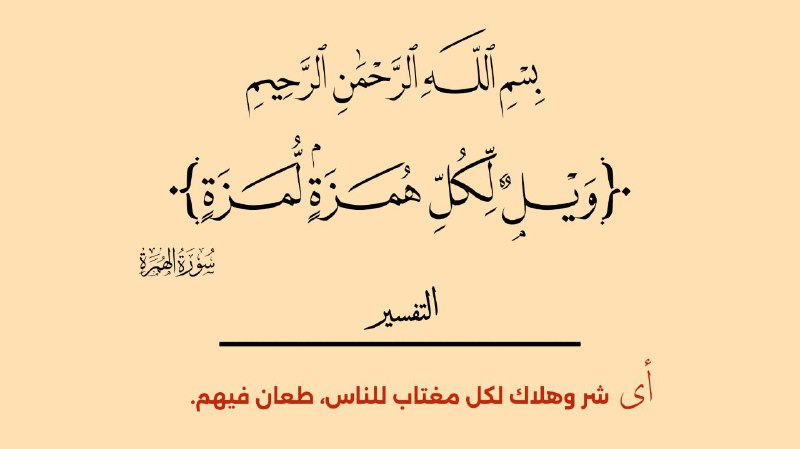 بِسْمِ اللَّهِ الرَّحْمَٰنِ الرَّحِيمِ
﴿وَيْلٌ لِّكُلِّ هُمَزَةٍ لُّمَزَةٍ﴾
سُورَةُ الهُمَزَةِ
التفسير
أى شر وهلاك لكل مغتاب للناس، طعان فيهم.